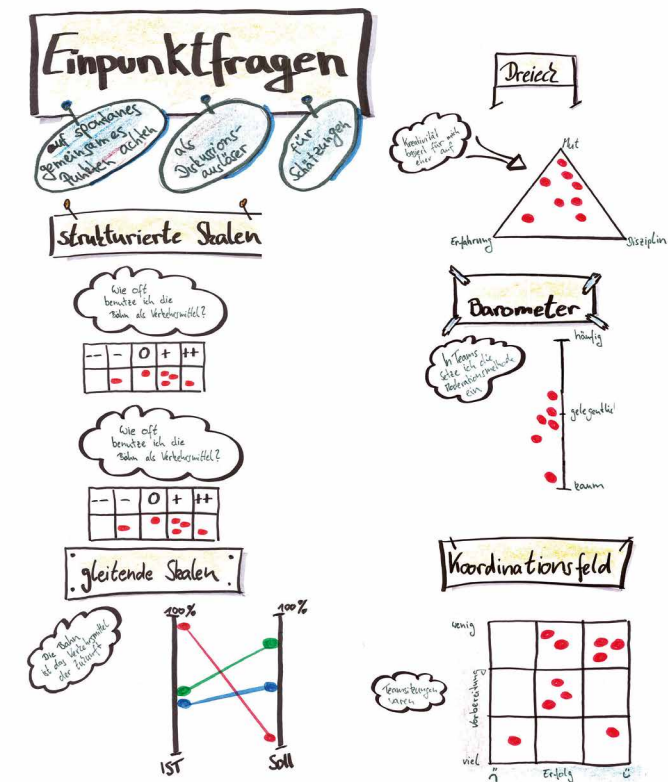 Einpunktfragen
auf spontanes
gemeinsames
Punkten achten
als
Diskussions-
auslöser
für
Schätzungen
strukturierte Skalen
Wie oft
benutze ich die
Bahn als Verkehrsmittel?
-- - 0 + ++
Wie oft
benutze ich die
Bahn als Verkehrsmittel?
-- - 0 + ++
gleitende Skalen
Die Bahn
ist das Verkehrsmittel
der Zukunft
100% 100%
IST Soll
Dreieck
Kreativität
basiert für mich
eher auf
Mut
Erfahrung Disziplin
Barometer
häufig
In Teams
setze ich die
Moderationsmethode
ein
gelegentlich
kaum
Koordinationsfeld
wenig
Teamsitzungen
waren
Vorbereitung
viel
Erfolg